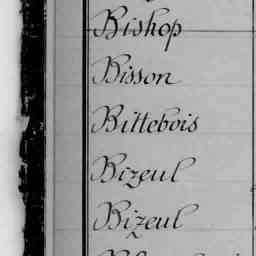 Bishop
Bisson
Bittebois
Bizeul
Bizeul